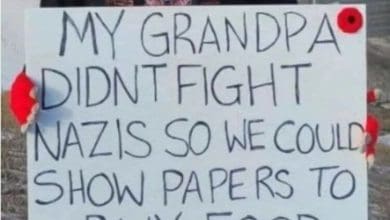 MY GRANDPA
DIDNT FIGHT
NAZIS SO WE COULD
SHOW PAPERS TO
BUY FOOD